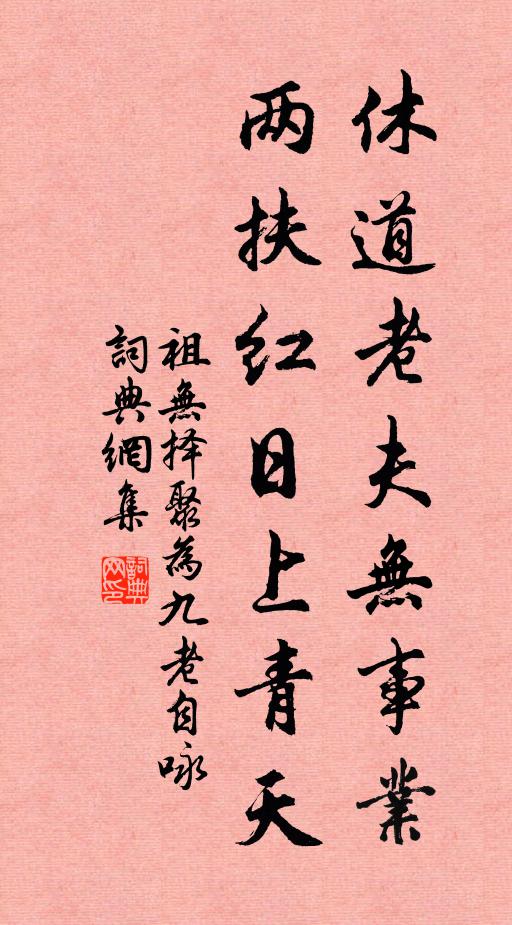 休道老夫無事業
两扶红日上青天
祖無择聚為九老自咏
詞典網集
詞典
网印